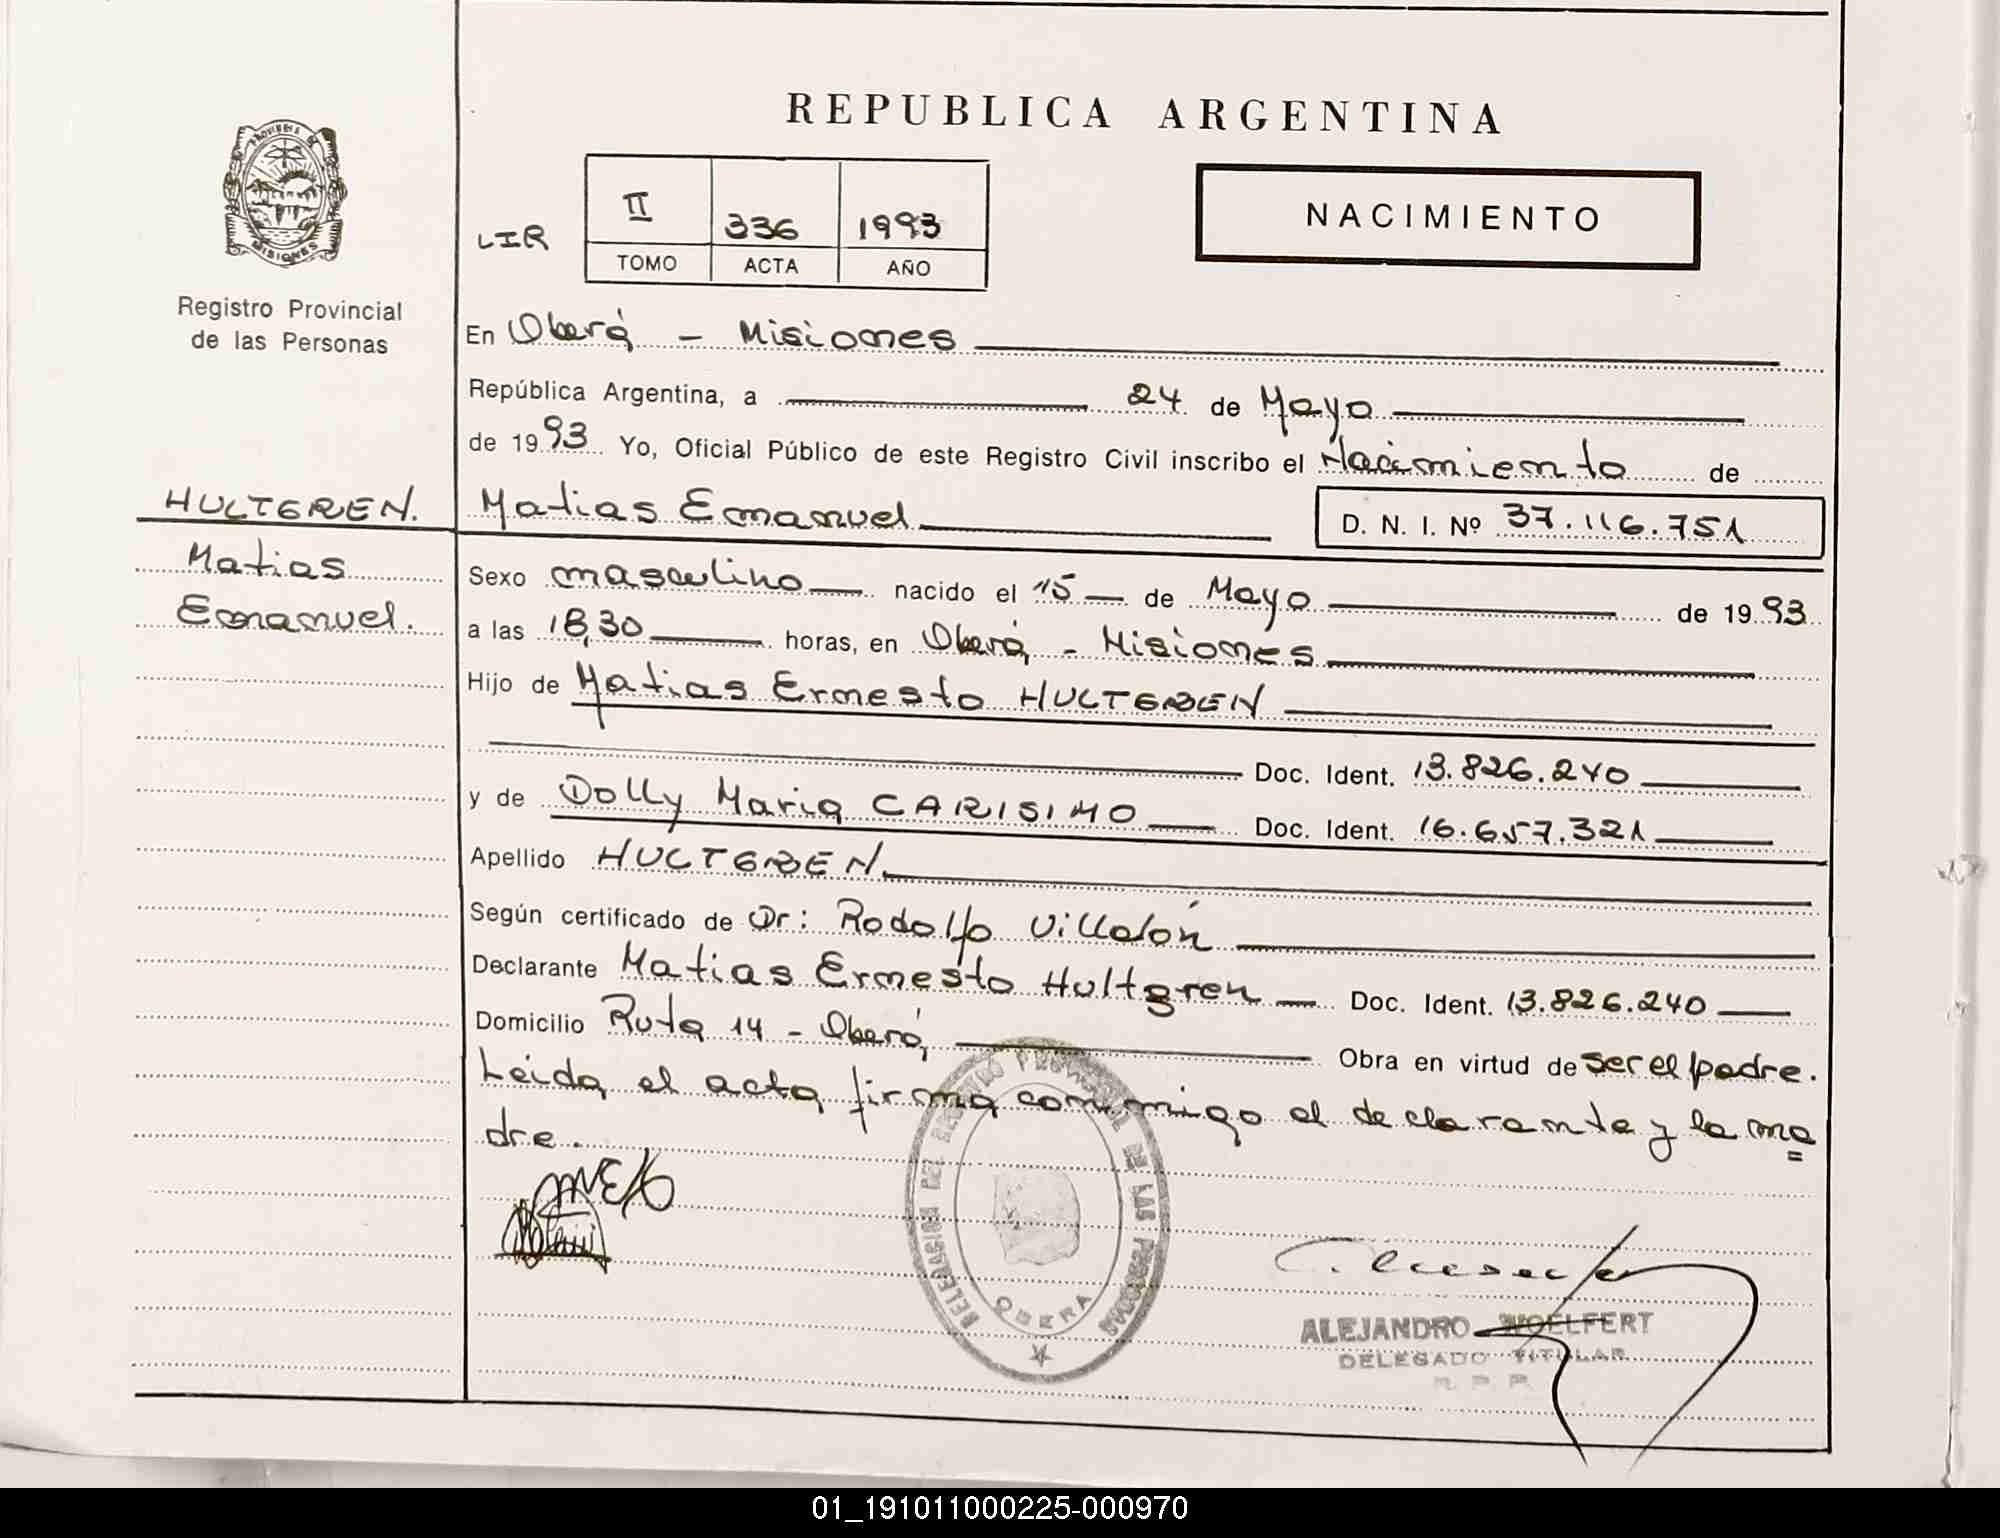 REPUBLICA ARGENTINA
PROVINCIA DE
MISIONES
Registro Provincial
de las Personas
LIR
II 336 1993
TOMO ACTA AÑO
NACIMIENTO
En Oberá - Misiones
República Argentina, a 24 de Mayo
de 1993 Yo, Oficial Público de este Registro Civil inscribo el Nacimiento de
HULTGREN.
Matias
Emanuel.
Matias Emanuel
D. N. I. Nº 37.116.751
Sexo masculino nacido el 15 de Mayo de 1993
a las 18,30 horas, en Oberá - Misiones
Hijo de Matias Ernesto HULTGREN
Doc. Ident. 13.826.240
y de Dolly Maria CARISIMO Doc. Ident. 16.657.321
Apellido HULTGREN
Según certificado de Dr: Rodolfo Villalón
Declarante Matias Ernesto Hultgren Doc. Ident. 13.826.240
Domicilio Ruta 14 - Oberá, Obra en virtud de ser el padre.
Leida el acta firma conmigo el declarante y la ma
dre.
DELEGASION DEL REGISTRO PROVINCIAL DE LAS PERSONAS
OBERA
ALEJANDRO WOELFERT
DELEGADO TITULAR
R. P. P.
01_191011000225-000970